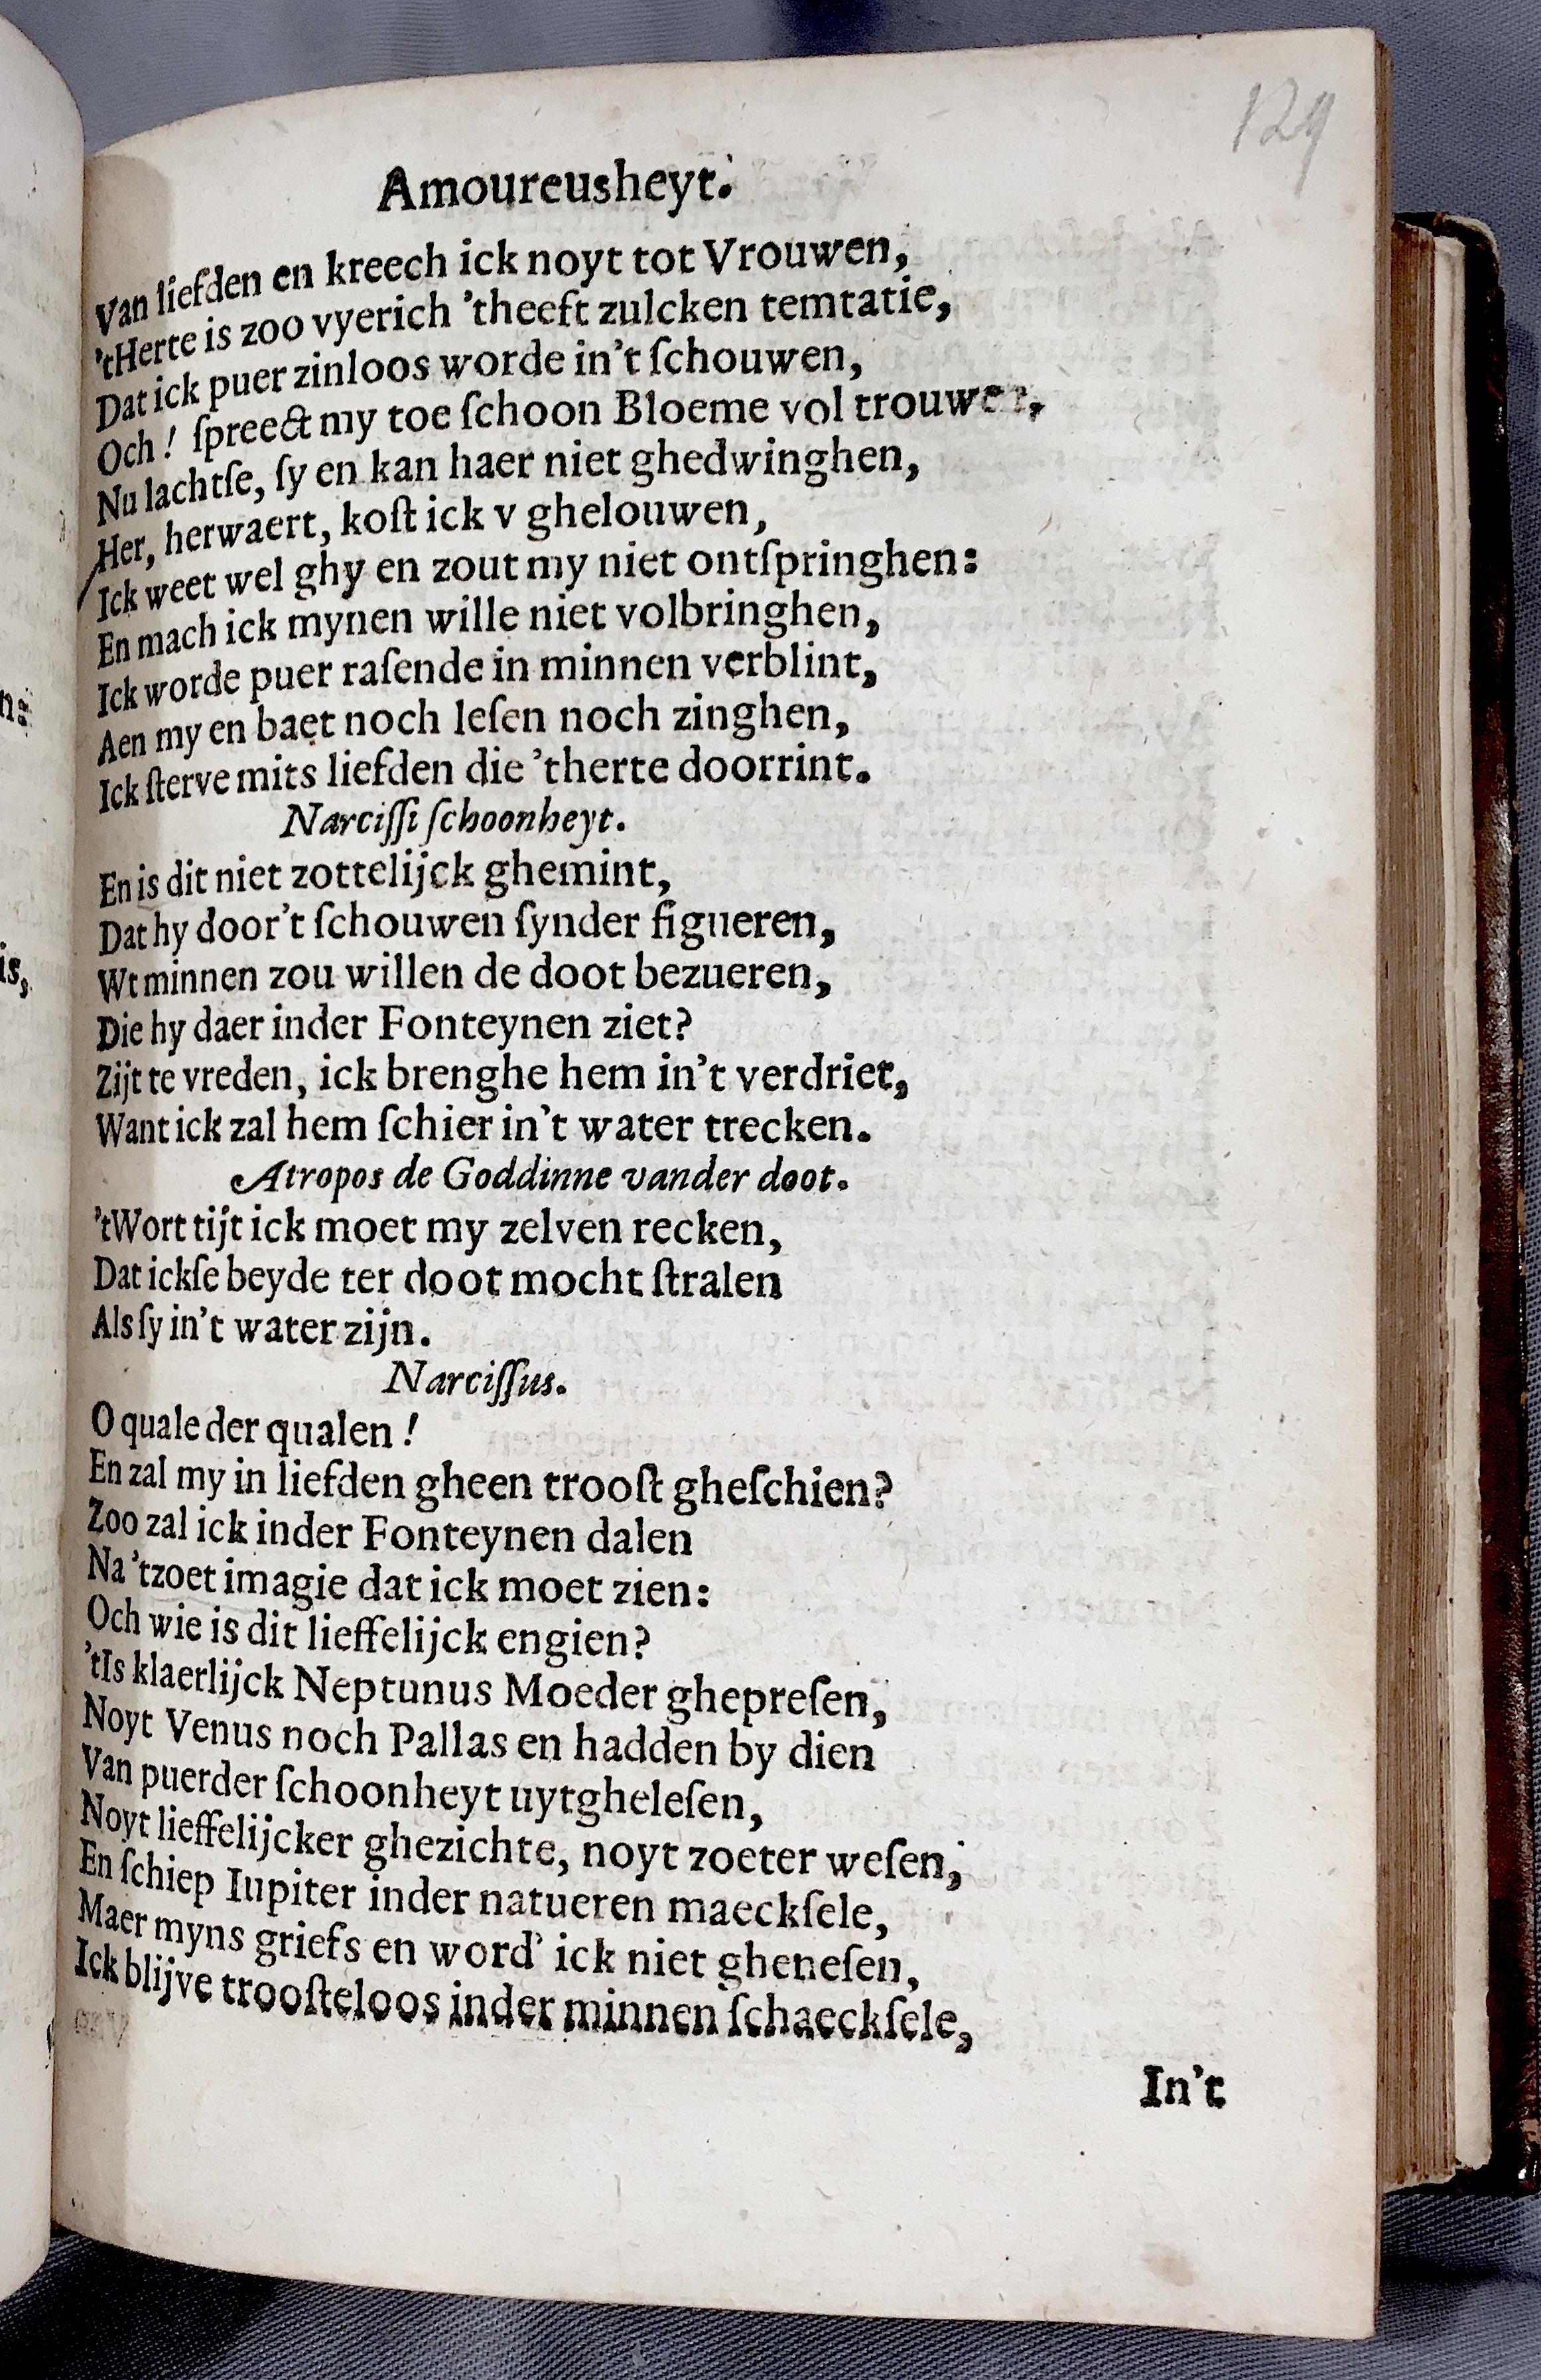 129
Amoureusheyt.
Van liefden en kreech ick noyt tot Vrouwen,
'tHerte is zoo vyerich 'theeft zulcken temtatie,
Dat ick puer zinloos worde in't ſchouwen,
Och! ſpreect my toe ſchoon Bloeme vol trouwen,
Nu lachtſe, ſy en kan haer niet ghedwinghen,
Her, herwaert, koſt ick v ghelouwen,
Ick weet wel ghy en zout my niet ontſpringhen:
En mach ick mynen wille niet volbringhen,
Ick worde puer raſende in minnen verblint,
Aen my en baet noch leſen noch zinghen,
Ick ſterve mits liefden die 'therte doorrint.
Narciſſi ſchoonheyt.
En is dit niet zottelijck ghemint,
Dat hy door't ſchouwen ſynder figueren,
Wt minnen zou willen de doot bezueren,
Die hy daer inder Fonteynen ziet?
Zijt te vreden, ick brenghe hem in't verdriet,
Want ick zal hem ſchier in't water trecken.
Atropos de Goddinne vander doot.
'tWort tijt ick moet my zelven recken,
Dat ickſe beyde ter doot mocht ſtralen
Als ſy in't water zijn.
Narciſſus.
O quale der qualen!
En zal my in liefden gheen trooſt gheſchien?
Zoo zal ick inder Fonteynen dalen
Na 'tzoet imagie dat ick moet zien:
Och wie is dit lieffelijck engien?
'tIs klaerlijck Neptunus Moeder ghepreſen,
Noyt Venus noch Pallas en hadden by dien
Van puerder ſchoonheyt uytgheleſen,
Noyt lieffelijcker ghezichte, noyt zoeter weſen,
En ſchiep Iupiter inder natueren maeckſele,
Maer myns griefs en word' ick niet gheneſen,
Ick blijve trooſteloos inder minnen ſchaeckſele,
In't
n:
is,